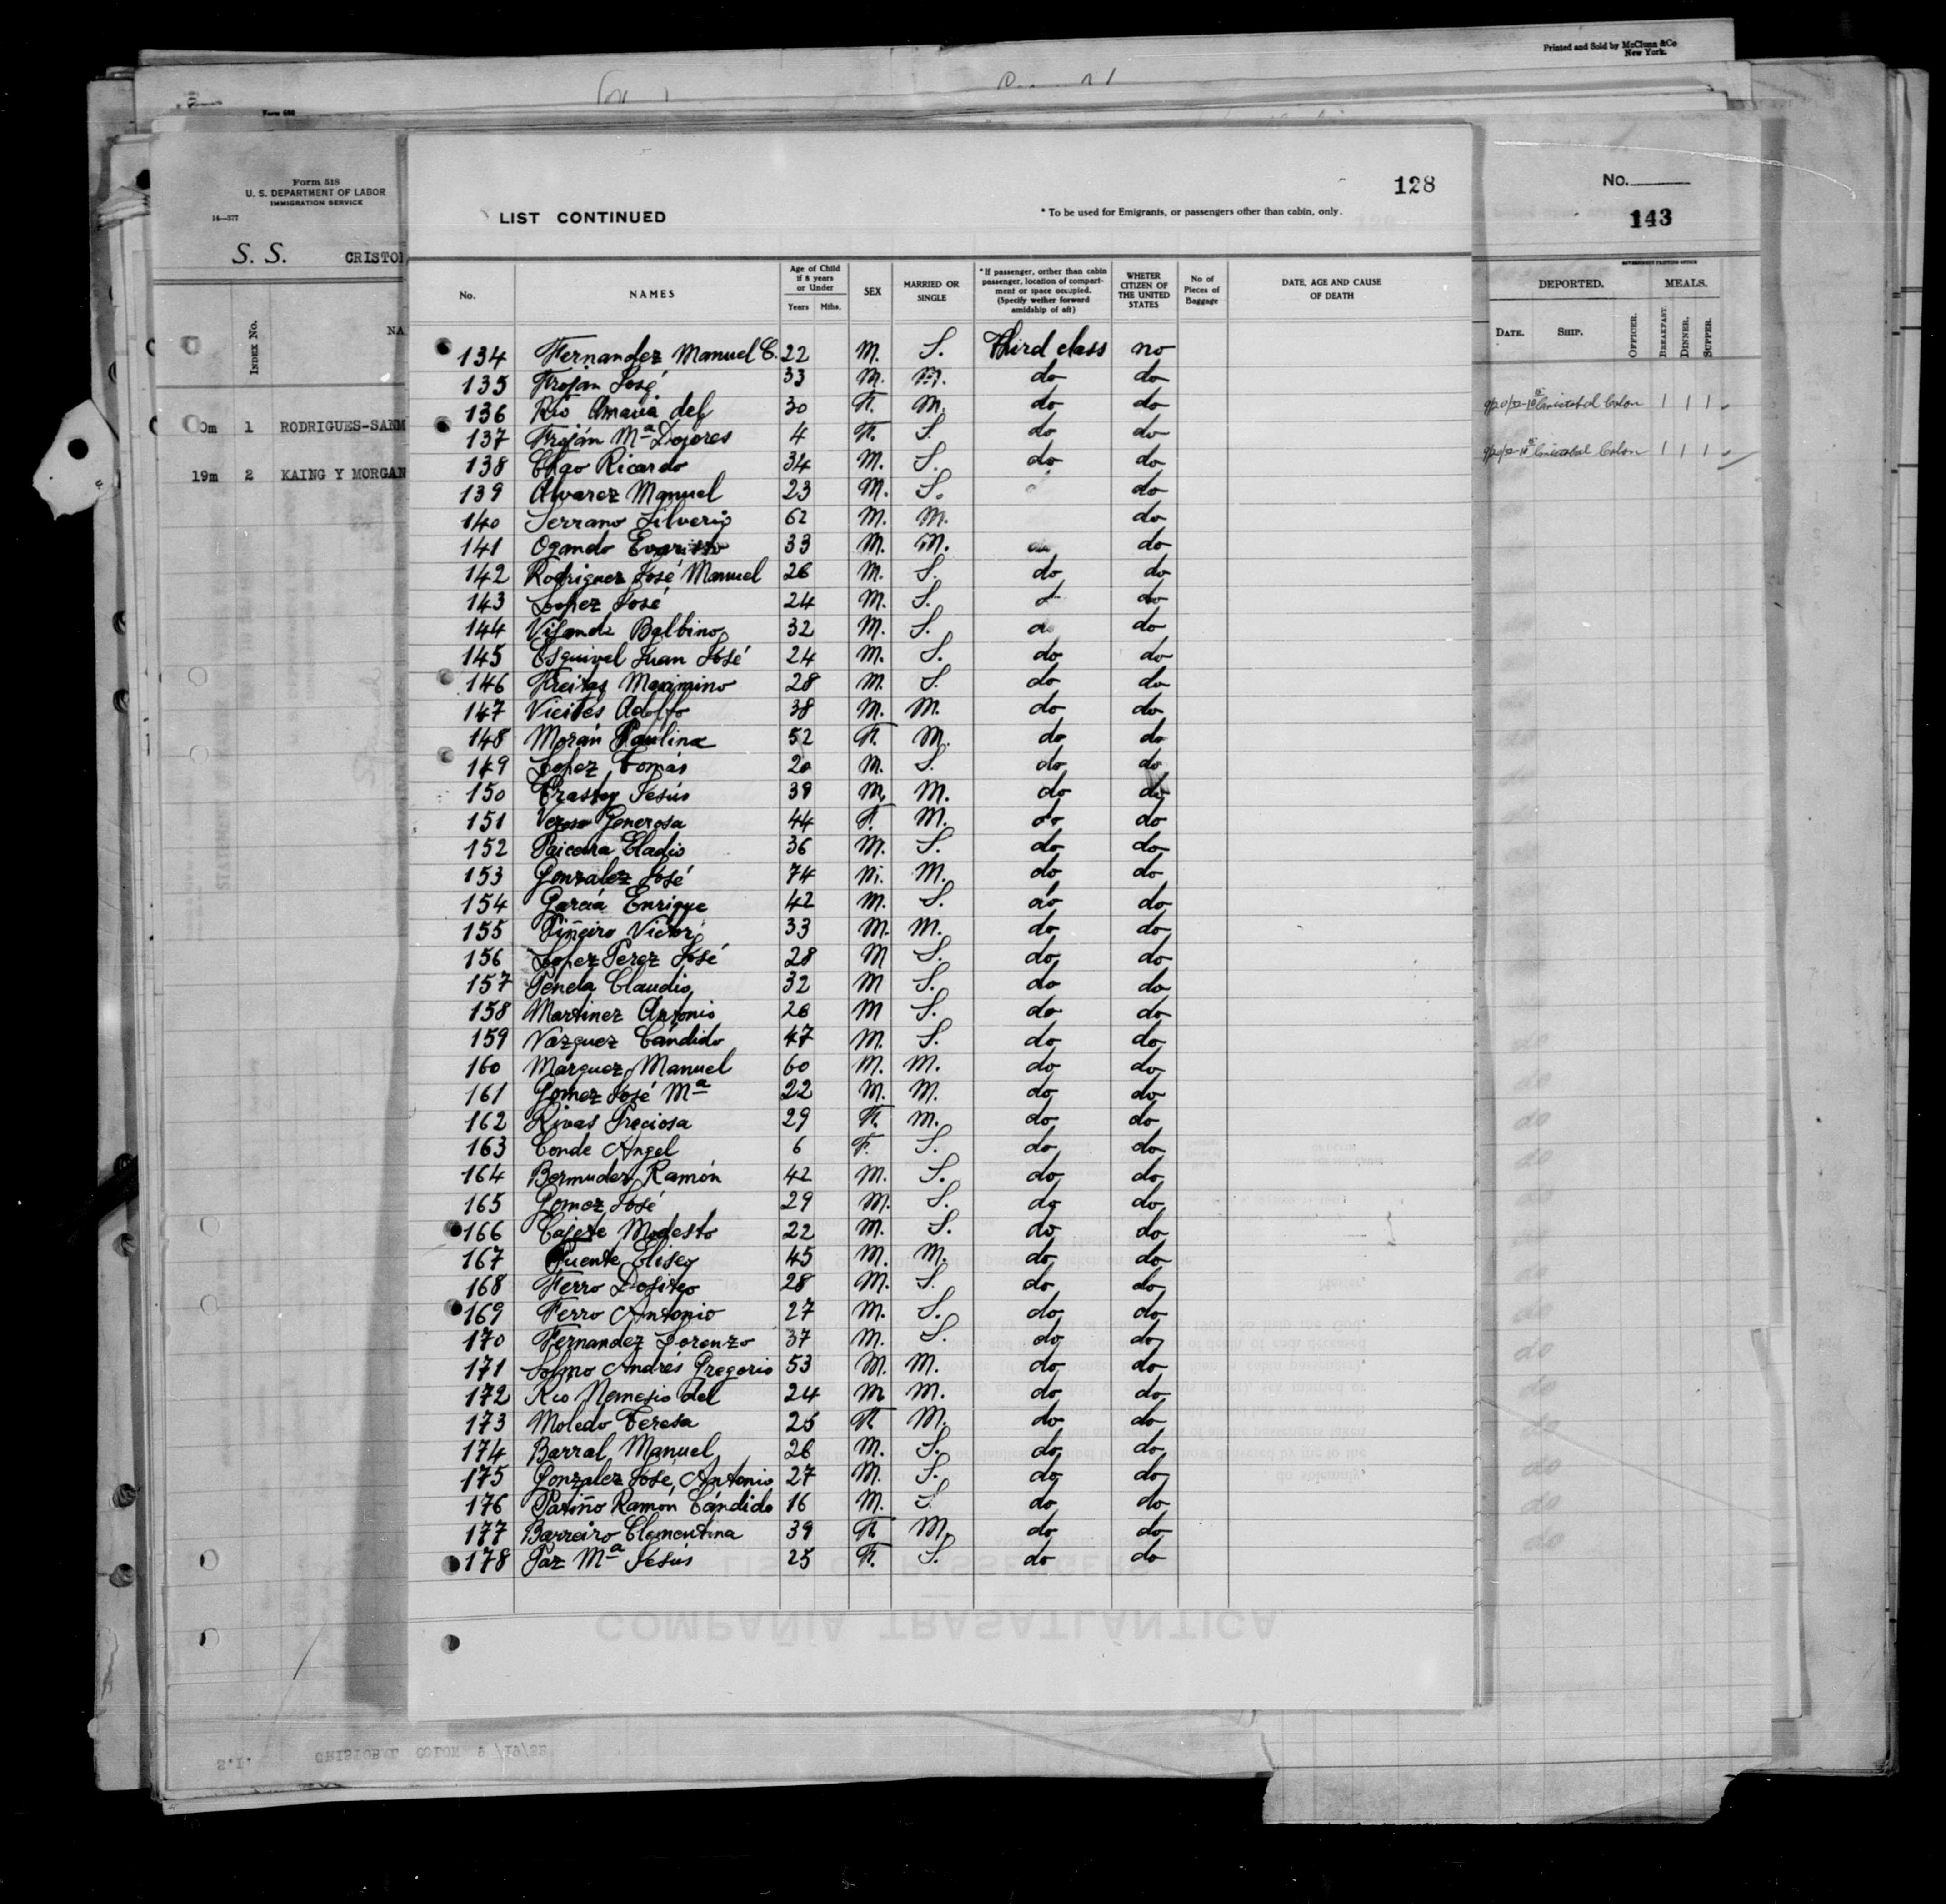 Printed and Sold by McClunn & Co
New York.
Form 518
U. S. DEPARTMENT OF LABOR
IMMIGRATION SERVICE
14—577
S. S. CRISTO
INDEX No.
NA
1 RODRIGUES-SANM
19m 2 KAING Y MORGAN
128
LIST CONTINUED
* To be used for Emigrants, or passengers other than cabin, only.
No. NAMES Age of Child if 8 years or Under Years Mths. SEX MARRIED OR SINGLE * If passenger, orther than cabin passenger, location of compartment or space occupied. (Specify wether forward amidship of aft) WHETER CITIZEN OF THE UNITED STATES No of Pieces of Baggage DATE, AGE AND CAUSE OF DEATH
134 Fernandez Manuel C. 22 M. S. Third class no
135 Froján José 33 M. M. do do
136 Rio Amavia del 30 F. M. do do
137 Froján Mª Dolores 4 F. S. do do
138 Chao Ricardo 34 M. S. do do
139 Alvarez Manuel 23 M. S. do
140 Serrano Silverio 62 M. M. do
141 Ogando Evaristo 33 M. M. do do
142 Rodriguez José Manuel 26 M. S. do do
143 Lopez José 24 M. S. do
144 Balbino 32 M. S. do do
145 Esquivel Juan José 24 M. S. do do
146 Freitas Maximino 28 M. S. do do
147 Vieites Adolfo 38 M. M. do do
148 Morán Paulina 52 F. M. do do
149 Lopez Tomás 20 M. S. do do
150 Jesús 39 M. M. do do
151 Generosa 44 F. M. do do
152 Eladio 36 M. S. do do
153 Gonzalez José 74 M. M. do do
154 García Enrique 42 M. S. do do
155 Piñeiro Victor 33 M. M. do do
156 Lopez Perez José 28 M S. do do
157 Penela Claudio 32 M S. do do
158 Martinez Antonio 26 M S. do do
159 Vazquez Cándido 47 M. S. do do
160 Márquez Manuel 60 M. M. do do
161 Gomez José Mª 22 M. M. do do
162 Rivas Preciosa 29 F. M. do do
163 Conde Angel 6 F. S. do do
164 Bermudez Ramón 42 M. S. do do
165 Gomez José 29 M. S. do do
166 Cajete Modesto 22 M. S. do do
167 Puente Eliseo 45 M. M. do do
168 Ferro Dositeo 28 M. S. do do
169 Ferro Antonio 27 M. S. do do
170 Fernandez Lorenzo 37 M. S. do do
171 Andrés Gregorio 53 M. M. do do
172 Rio Nemesio del 24 M M. do do
173 Moledo Teresa 25 F M. do do
174 Barral Manuel 26 M. S. do do
175 Gonzalez José Antonio 27 M. S. do do
176 Patiño Ramón Cándido 16 M. S do do
177 Barreiro Clementina 39 F. M. do do
178 Paz Mª Jesús 25 F. S. do do
No.
143
DEPORTED. MEALS.
DATE. SHIP. OFFICER. BREAKFAST. DINNER. SUPPER.
Cristobal Colon 1 1 1
Cristobal Colon 1 1 1
COMPAÑIA TRASATLANTICA
S.I. CRISTOBAL COLON 9/19/22